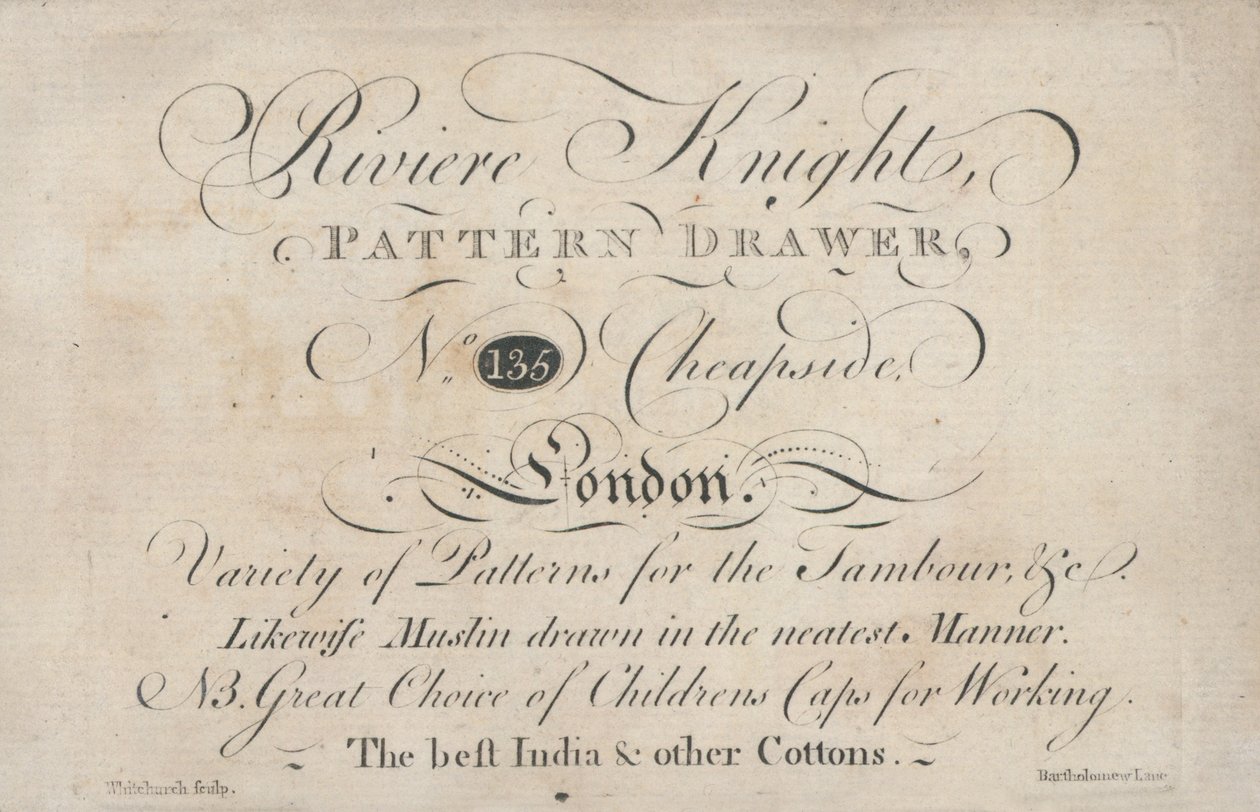 Riviere Knight,
PATTERN DRAWER,
No 135 Cheapside.
London.
Variety of Patterns for the Tambour, &c.
Likewiſe Muslin drawn in the neatest Manner.
NB. Great Choice of Childrens Caps for Working.
The beſt India & other Cottons.
Whitchurch ſculp.
Bartholomew Lane